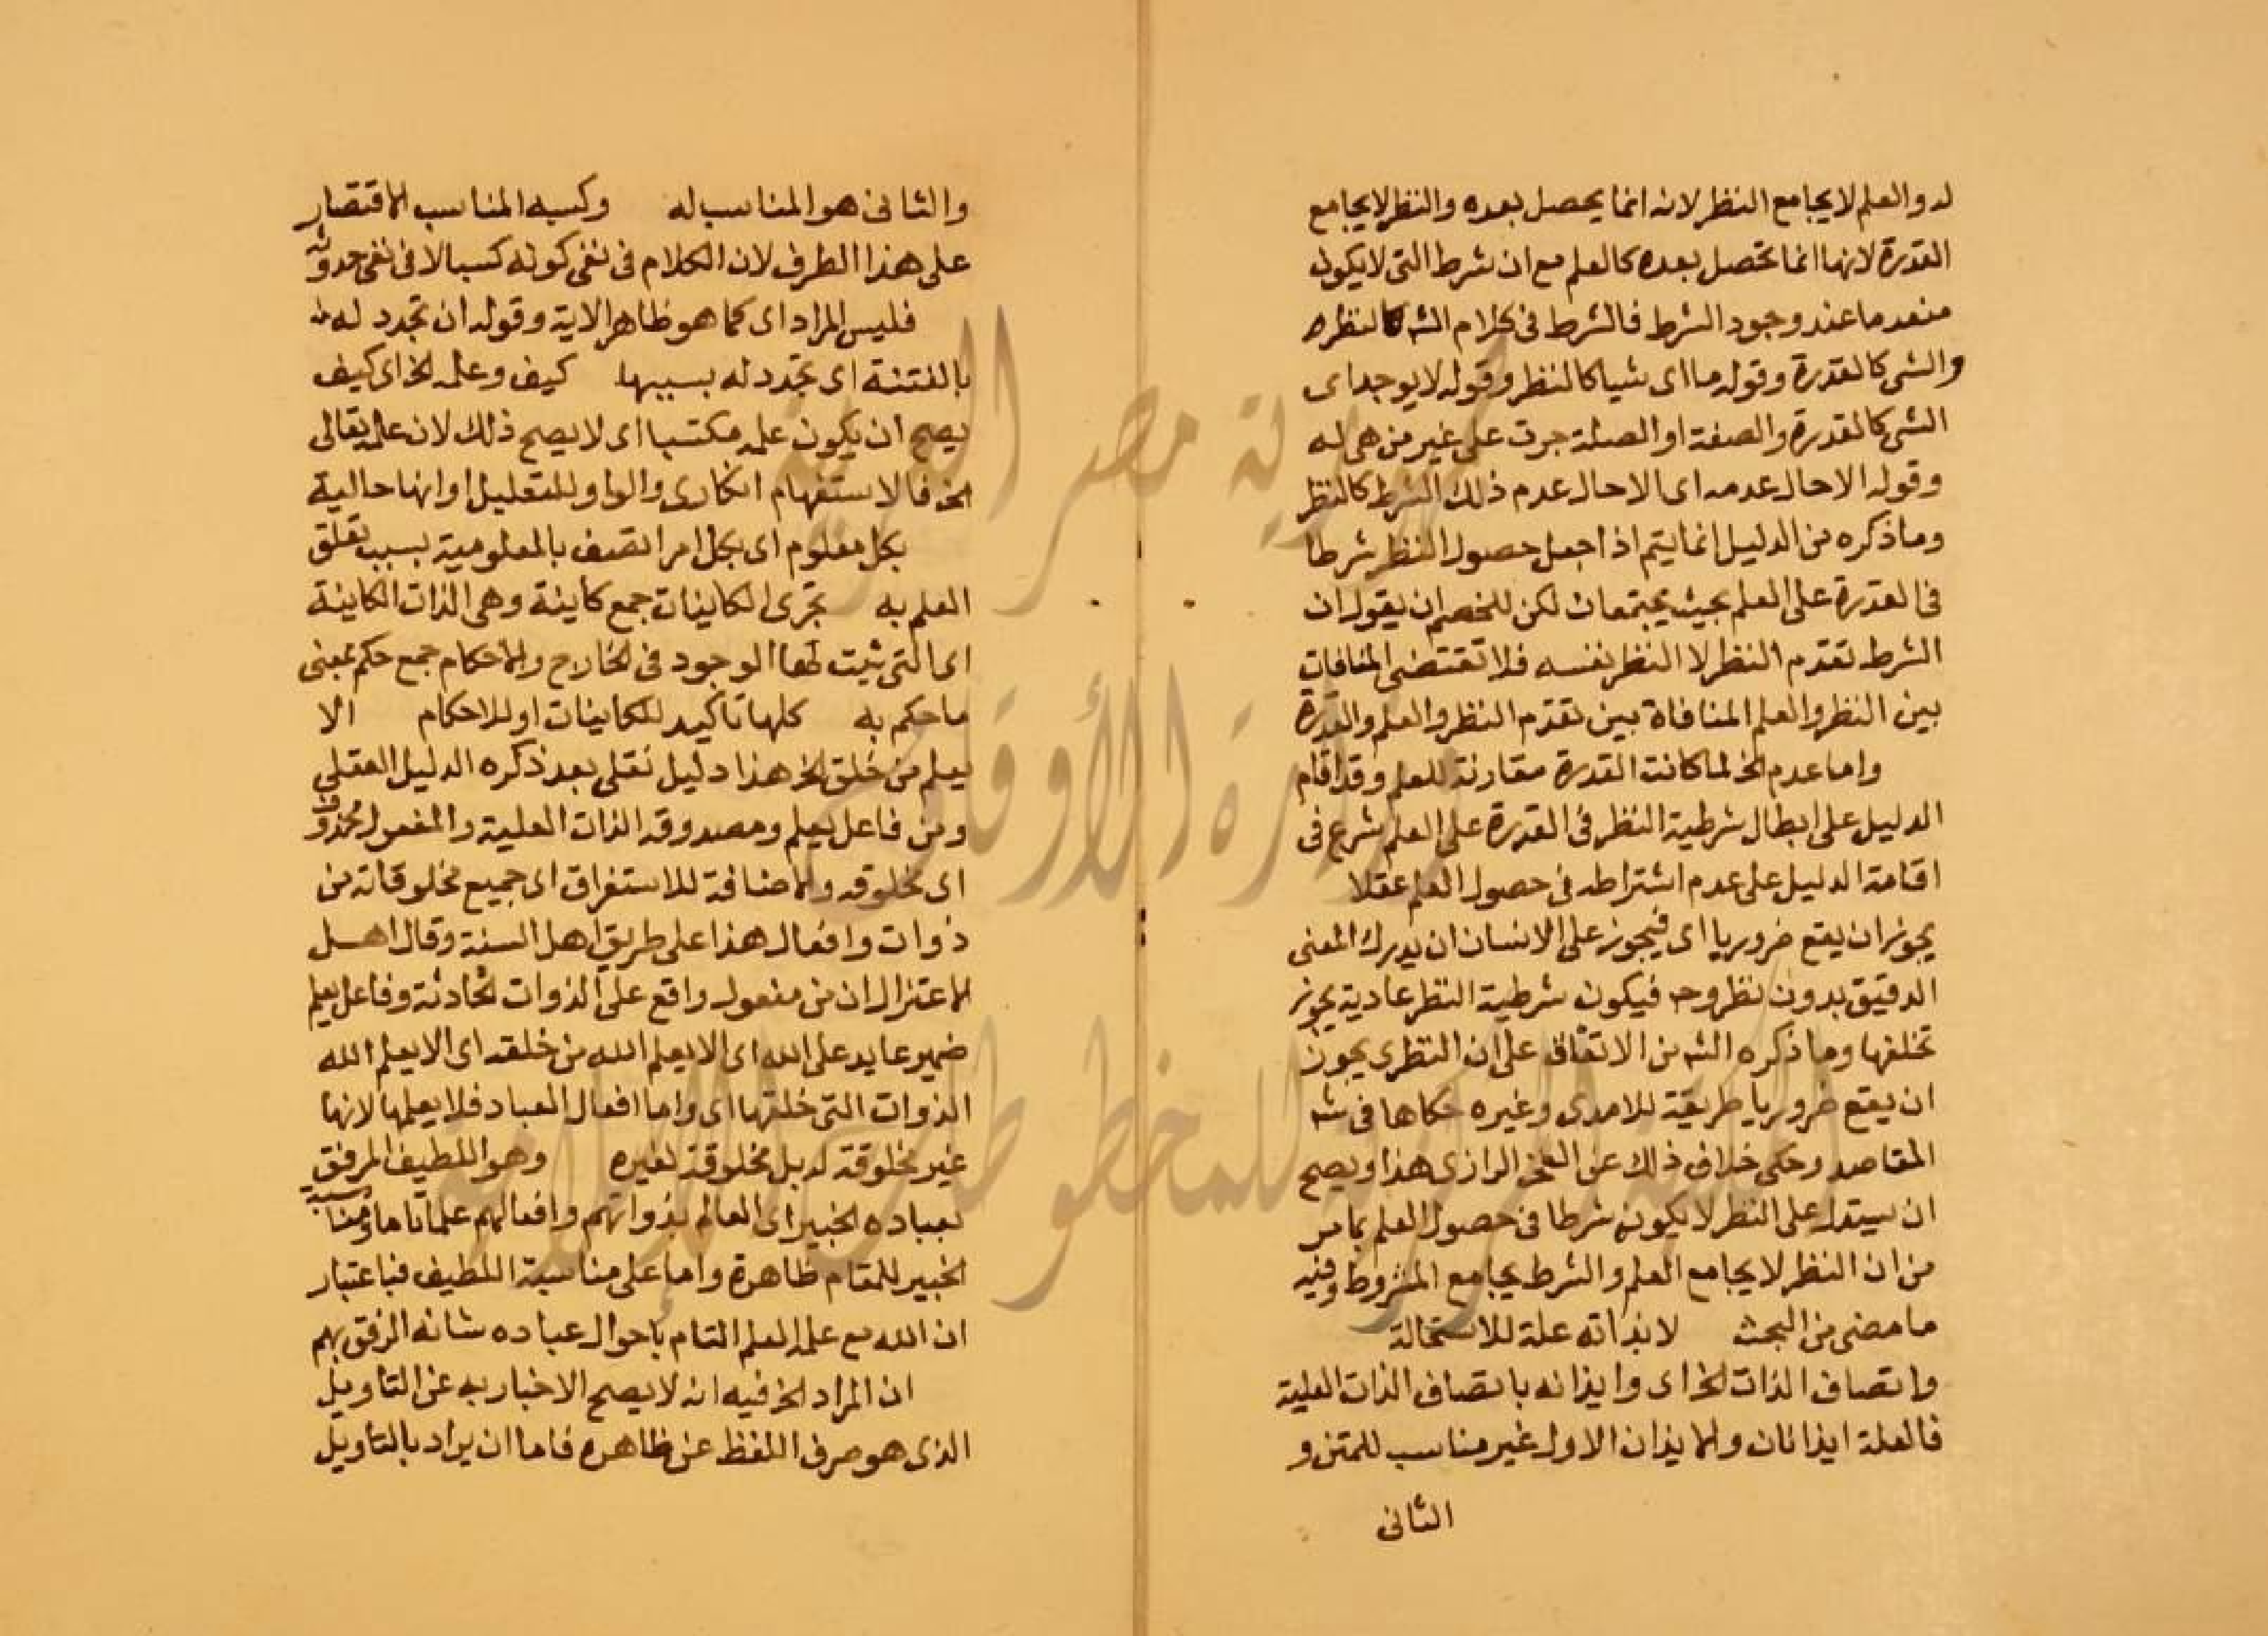 له والعلم لا يجامع النظر لانه انما يحصل بعده والنظر لا يجامع
القدرة لانها انما تحصل بعده كالعلم مع ان شرط التى لا يكون
منعدما عند وجود الشرط فالشرط فى كلام الشه كالنظر
والشى كالقدرة وقوله ما اى شيا كالنظر وقوله لا يوجد اى
الشى كالقدرة والصفة او الصلة جرت على غير من هى له
وقوله الا حال عدمه اى الا حال عدم ذلك الشرط كالنظر
وما ذكره من الدليل انما يتم اذا جعل حصول النظر شرطا
فى القدرة على العلم بحيث يجتمعان لكن للخصم ان يقول ان
الشرط تقدم النظر لا النظر نفسه فلا تقتضى المنافات
بين النظر والعلم المنافاة بين تقدم النظر والعلم والقدرة
واما عدم الخ لما كانت القدرة مقارنة للعلم وقد اقام
الدليل على ابطال شرطية النظر فى القدرة على العلم شرع فى
اقامة الدليل على عدم اشتراطه فى حصول العلم عقلا
يجوز ان يقع ضروريا اى فيجوز على الانسان ان يدرك المعنى
الدقيق بدون نظر وح فيكون شرطية النظر عادية يجوز
تخلفها وما ذكره الشه من الاتفاق على ان النظرى يجوز
ان يقع ضروريا طريقة للامدى وغيره حكاها فى شه
المقاصد وحكى خلاف ذلك عن الفخر الرازى هذا ويصح
ان يستدل على النظر لا يكون شرطا فى حصول العلم بما مر
من ان النظر لا يجامع العلم والشرط يجامع المشروط وفيه
ما مضى من البحث لا بذاته علة للاستحالة
واتصاف الذات الخ اى وايذانه باتصاف الذات العلية
فالعلة ايذانان والايذان الاول غير مناسب للمتن و
الثانى
والثانى هو المناسب له وكسبه المناسب الاقتصار
على هذا الطرف لان الكلام فى نفى كونه كسبا لا فى نفى حدوثه
فليس المراد اى كما هو ظاهر الاية وقوله ان تجدد له
بالفتنة اى تجدد له بسببها كيف وعلمه الخ اى كيف
يصح ان يكون علمه مكتسبا اى لا يصح ذلك لان علمه تعالى
الخ فالاستفهام انكارى والواو للتعليل او انها حالية
بكل معلوم اى بكل امر اتصف بالمعلومية بسبب تعلق
العلم به تجرى الكاينات جمع كاينة وهى الذات الكاينة
اى التى ثبت لها الوجود فى الخارج والاحكام جمع حكم بمعنى
ما حكم به كلها تاكيد للكاينات او للاحكام الا
يعلم من خلق الخ هذا دليل نقلى بعد ذكره الدليل العقلى
ومن فاعل يعلم ومصدوقه الذات العلية والمفعول محذوف
اى مخلوقه والاضافة للاستغراق اى جميع مخلوقاته من
ذوات وافعال هذا على طريق اهل السنة وقال اهل
الاعتزال ان من مفعول واقع على الذوات الحادثة وفاعل يعلم
ضمير عايد على الله اى الا يعلم الله من خلقه اى الا يعلم الله
الذوات التى خلقها اى واما افعال العباد فلا يعلمها لانها
غير مخلوقة له بل مخلوقة لغيره وهو اللطيف المرفق
بعباده الخبير اى العالم بذواتهم وافعالهم علما تاما ومناسبة
الخبير للمقام ظاهرة واما على مناسبة اللطيف فباعتبار
ان الله مع علمه العلم التام باحوال عباده شانه الرفق بهم
ان المراد الخ فيه انه لا يصح الاخبار به عن التاويل
الذى هو صرف اللفظ عن ظاهره فاما ان يراد بالتاويل